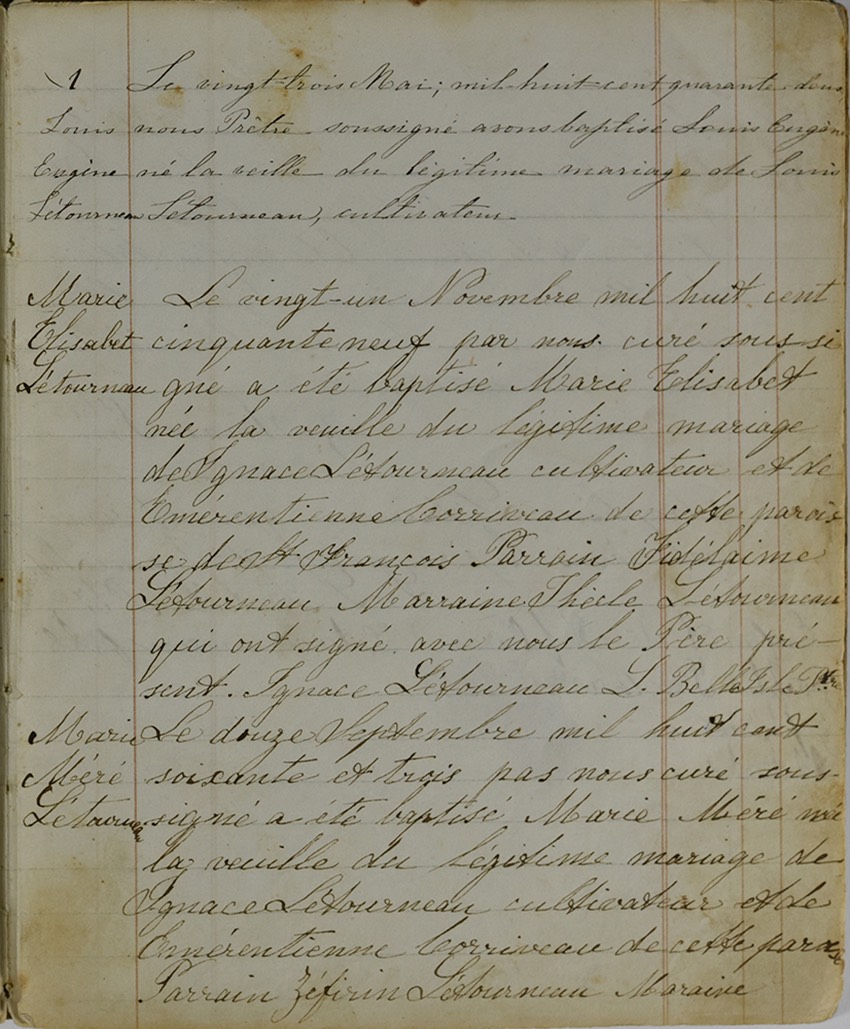 1 Le vingt-trois Mai; mil-huit-cent quarante-deux,
Louis nous Prêtre soussigné avons baptisé Louis Eugène
Eugène né la veille du légitime mariage de Louis
Létourneau Létourneau, cultivateur
Marie Le vingt-un Novembre mil huit cent
Elisabet cinquante neuf par nous curé sous si
Létourneau gné a été baptisé Marie Elisabet
née la veuille du légitime mariage
de Ignace Létourneau cultivateur et de
Emérentienne Corriveau de cette parois
se de St François Parrain Fidélaime
Létourneau Marraine Thècle Létourneau
qui ont signé avec nous le Père pré-
sent. Ignace Létourneau L. Belle Isle Ptre
Marie Le douze Septembre mil huit cent
Méré soixante et trois pas nous curé sous-
Létourneau signé a été baptisé Marie Méré née
la veuille du légitime mariage de
Ignace Létourneau cultivateur et de
Emérentienne Corriveau de cette paroisse
Parrain Zéfirin Létourneau Maraine